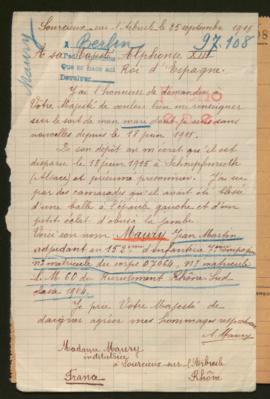 Sourcieux sur l'Arbresle le 25 septembre 1915
Maury
A Berlin
97.108
A sa Majesté Alphonse XIII
Roi d'Espagne
Que se ruega
Devolver
J'ai l'honneur de demander
Votre Majesté de vouloir bien me renseigner
sur le sort de mon mari dont je suis sans
nouvelles depuis le 18 juin 1915.
Le son dépôt on m'écrit que il est
disparu le 18 juin 1915 à Schnepfenrieth
(Alsace) et présumé prisonnier. J'ai su
par des camarades qu'il avait été blessé
d'une balle à l'épaule gauche et d'un
petit éclat d'obus à la jambe.
Voici son nom Maury Jean Martin
adjudant en 152e d'Infanterie
no matricule du corps 07064. No matricule
L.M 60 du recrutement Rhône-Sud
classe 1904.
Je prie Votre Majesté de
daigner agréer mes hommages
A Maury
Madame Maury
institutrice
à Sourcieux-sur-l'Arbresle
Rhône
France